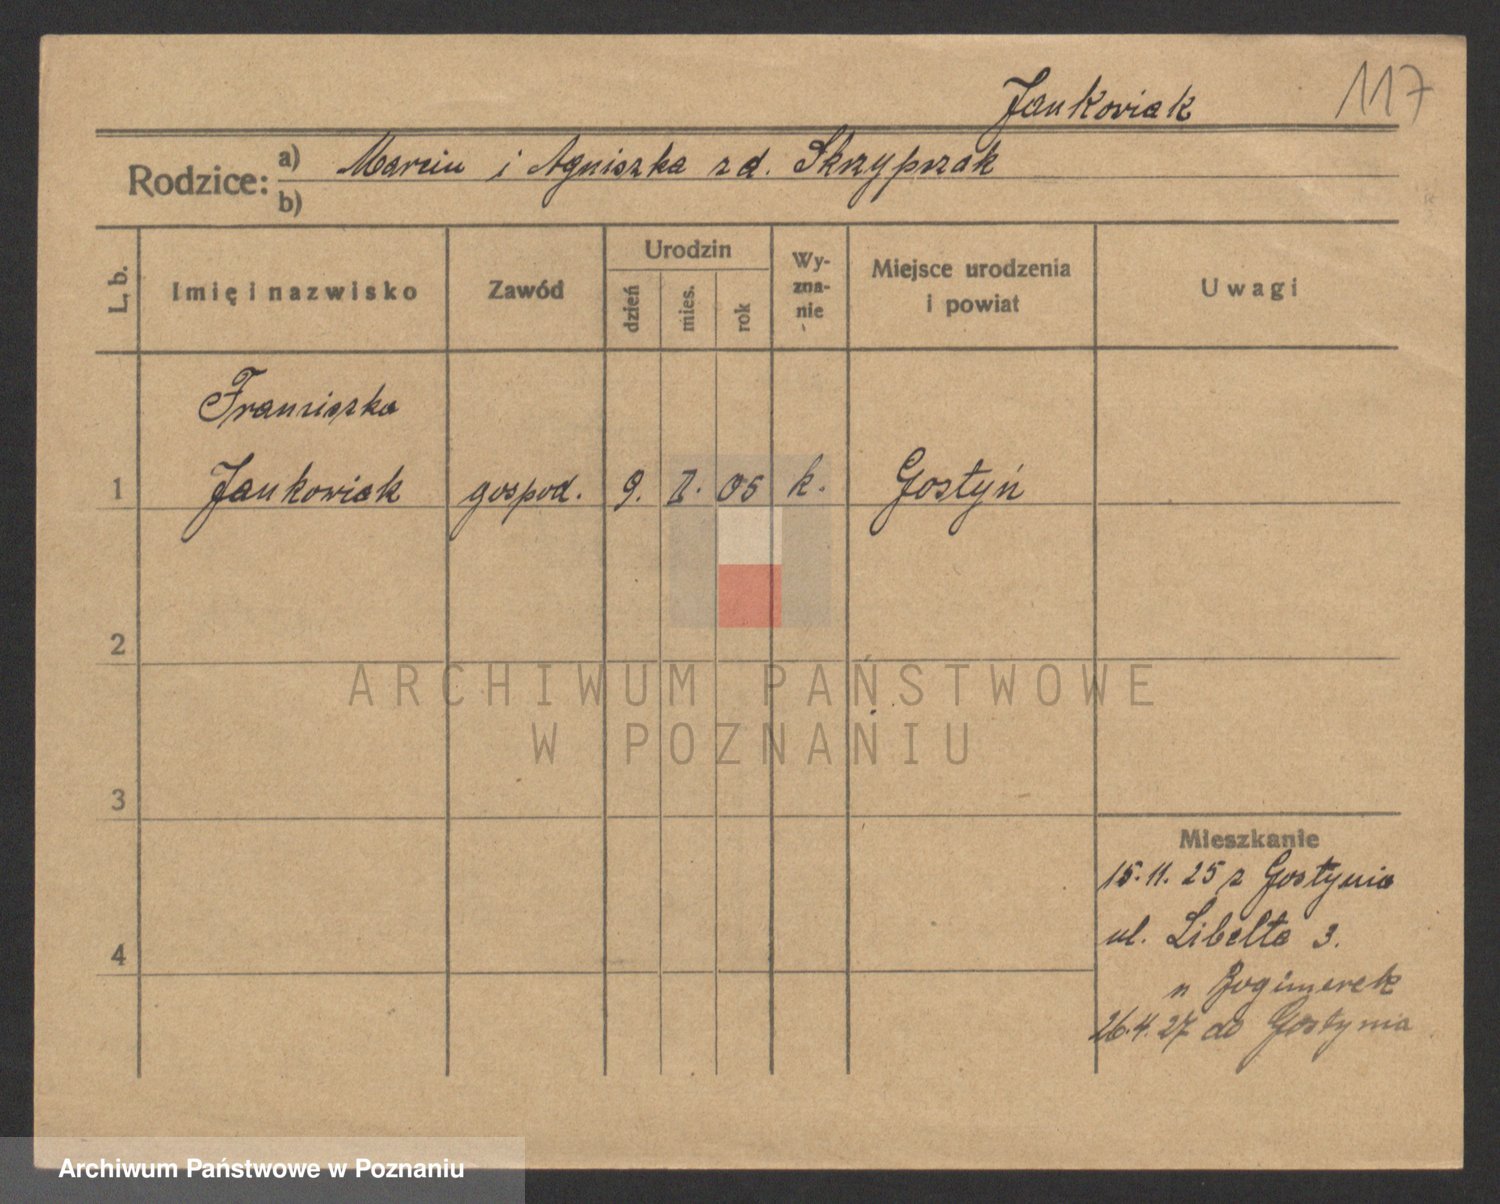 Jankowiak 117
Rodzice: a) Marcin i Agniszka z d. Skrzypczak
b)
L. b. Imię i nazwisko Zawód Urodzin dzień mies. rok Wy-zna-nie Miejsce urodzenia i powiat Uwagi
Franciszka
1 Jankowiak gospod. 9. 05 k. Gostyń
2
ARCHIWUM PAŃSTWOWE
W POZNANIU
3
Mieszkanie
15. 11. 25 z Gostynia
ul. Libelta 3.
4
26. 4. 27 do Gostynia
Archiwum Państwowe w Poznaniu